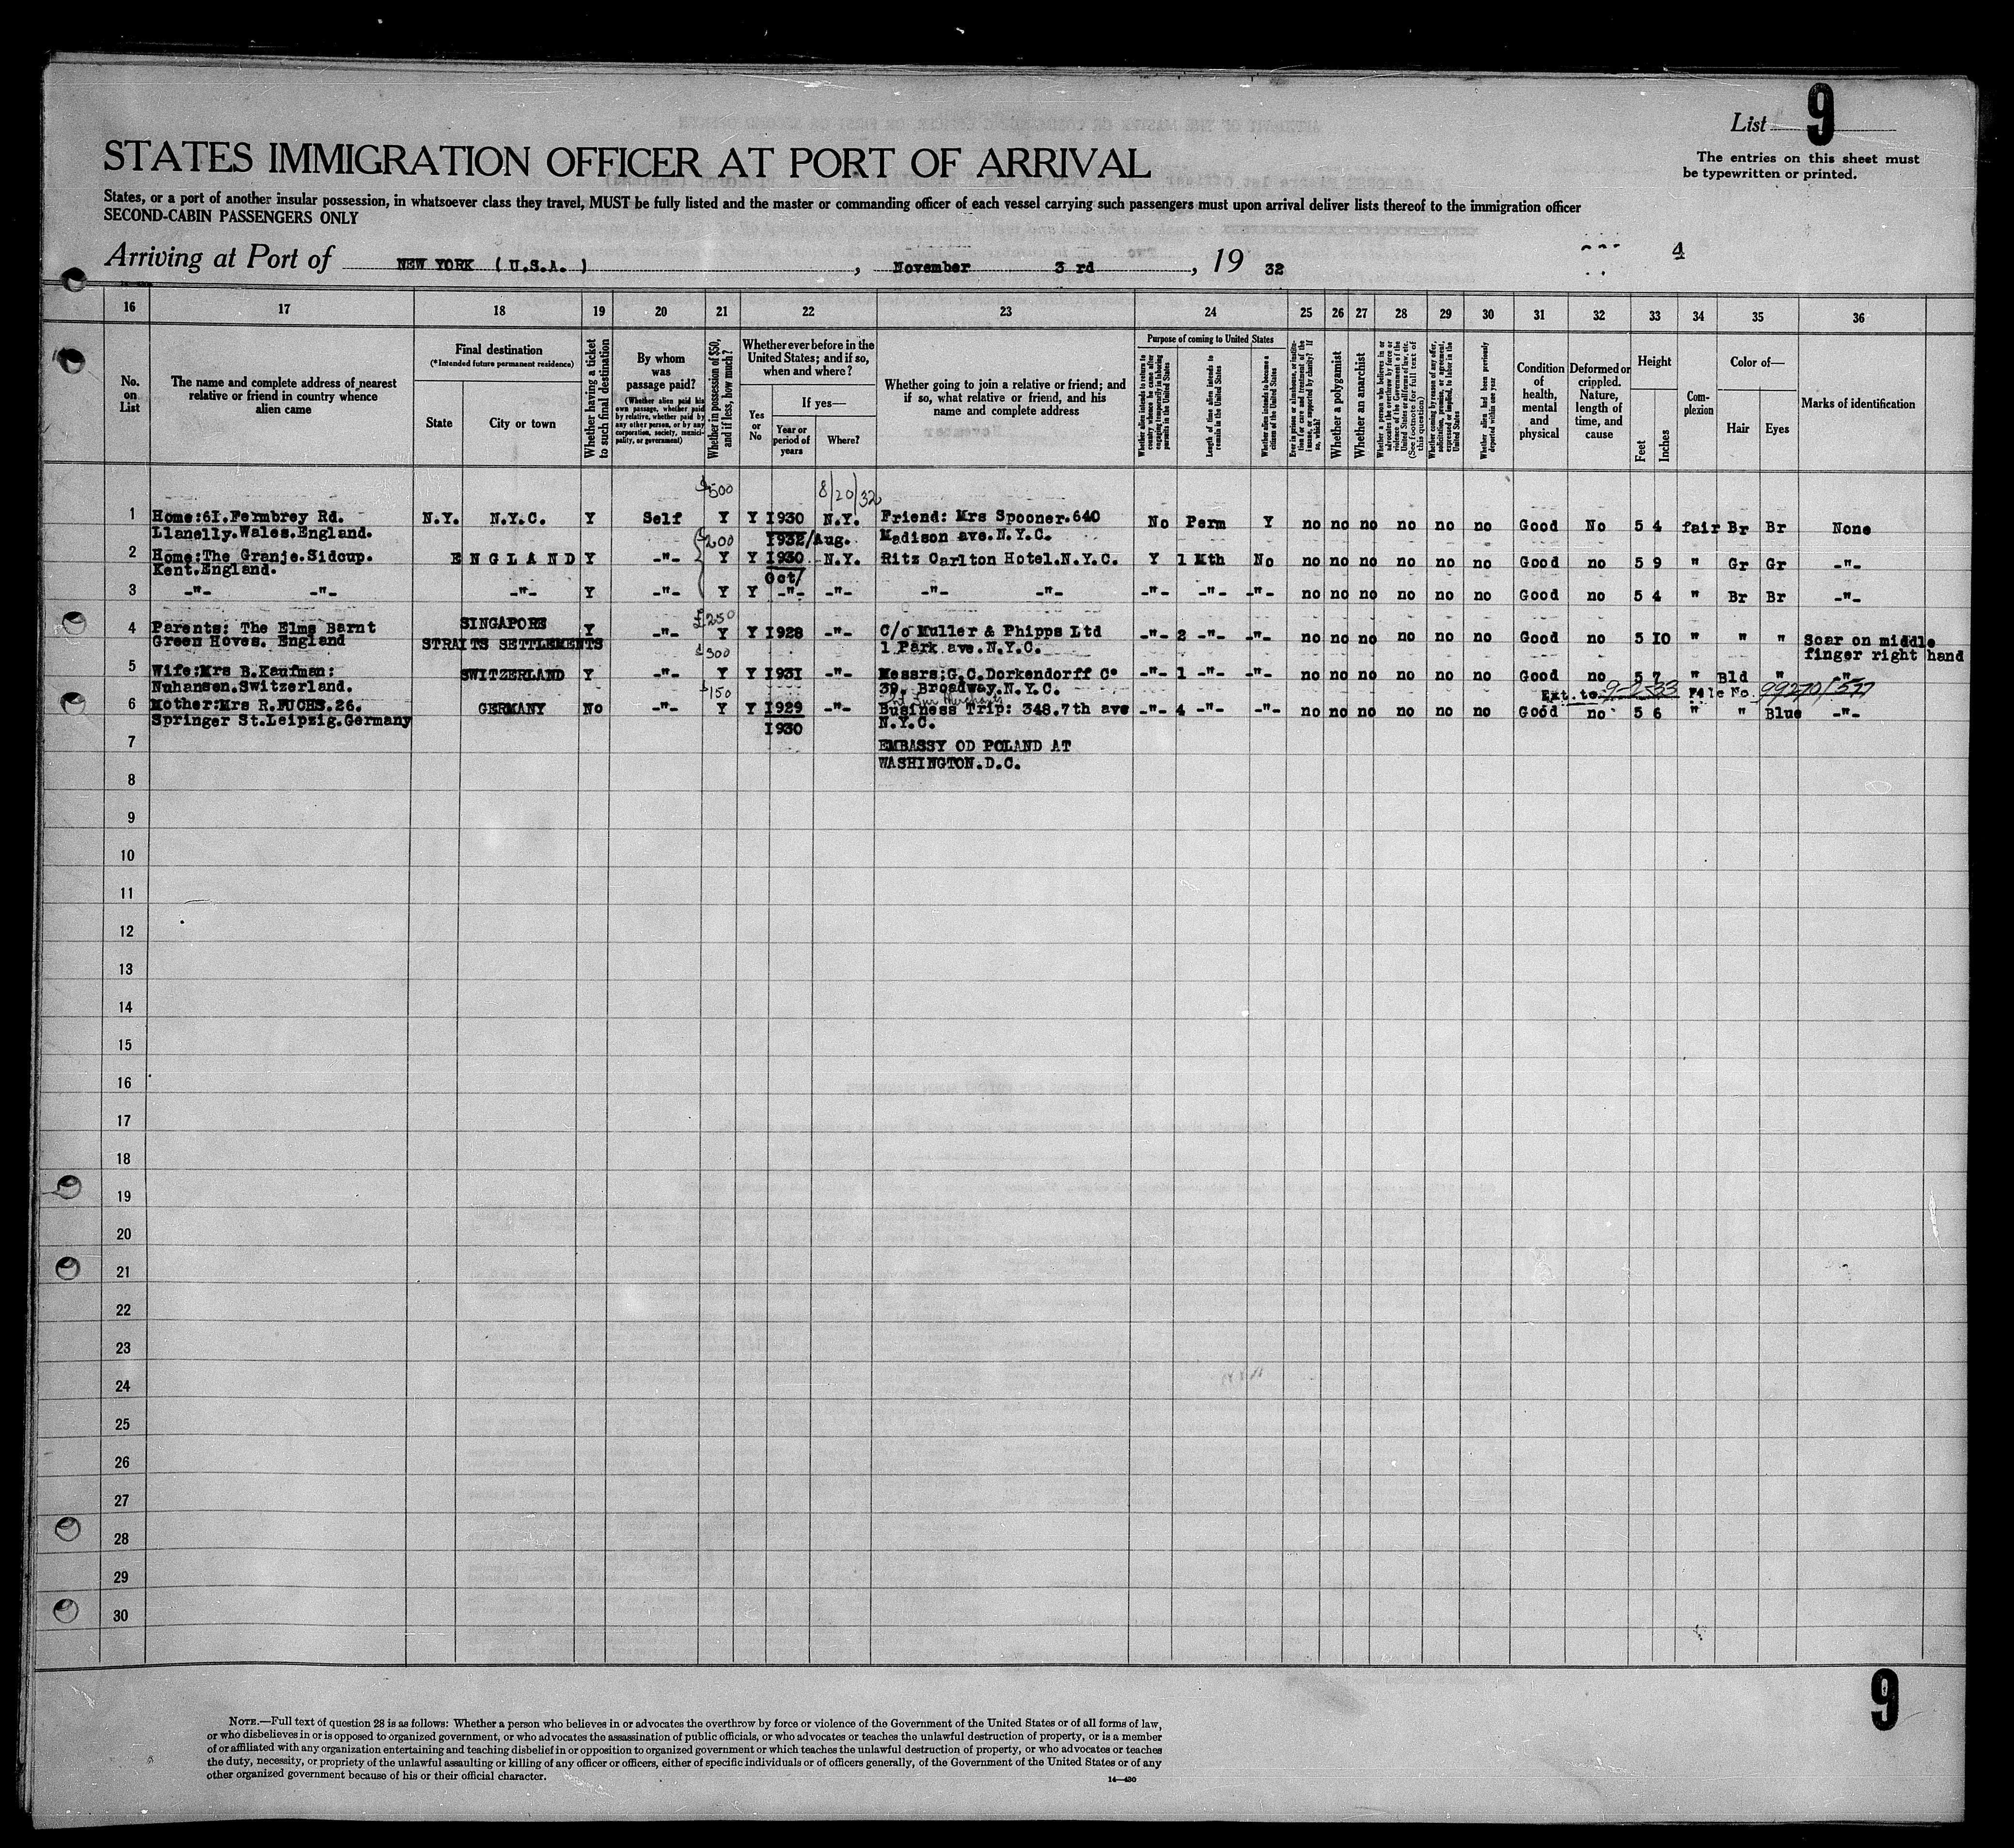 List 9
STATES IMMIGRATION OFFICER AT PORT OF ARRIVAL
The entries on this sheet must
be typewritten or printed.
States, or a port of another insular possession, in whatsoever class they travel, MUST be fully listed and the master or commanding officer of each vessel carrying such passengers must upon arrival deliver lists thereof to the immigration officer
SECOND-CABIN PASSENGERS ONLY
Arriving at Port of NEW YORK ( U.S.A. ) , November 3 rd , 19 32
4
16 17 18 19 20 21 22 23 24 25 26 27 28 29 30 31 32 33 34 35 36
No. on List
The name and complete address of nearest relative or friend in country whence alien came
Final destination
(*Intended future permanent residence)
State
City or town
Whether having a ticket to such final destination
By whom was passage paid?
(Whether alien paid his own passage, whether paid by relative, whether paid by any other person, or by any corporation, society, municipality, or government)
Whether in possession of $50, and if less, how much?
Whether ever before in the United States; and if so, when and where?
Yes or No
If yes—
Year or period of years
Where?
Whether going to join a relative or friend; and if so, what relative or friend, and his name and complete address
Purpose of coming to United States
Whether alien intends to return to country whence he came after engaging temporarily in laboring pursuits in the United States
Length of time alien intends to remain in the United States
Whether alien intends to become a citizen of the United States
Ever in prison or almshouse, or institution for care and treatment of the insane, or supported by charity? If so, which?
Whether a polygamist
Whether an anarchist
Whether a person who believes in or advocates the overthrow by force or violence of the Government of the United States or all forms of law, etc. (See footnote for full text of this question)
Whether coming by reason of any offer, solicitation, promise, or agreement, expressed or implied, to labor in the United States
Whether alien had been previously deported within one year
Condition of health, mental and physical
Deformed or crippled. Nature, length of time, and cause
Height
Feet
Inches
Complexion
Color of—
Hair
Eyes
Marks of identification
$500 8/20/32
1 Home:61.Fermbrey Rd. N.Y. N.Y.C. Y Self Y Y 1930 N.Y. Friend: Mrs Spooner.640 No Perm Y no no no no no no Good No 5 4 fair Br Br None
Llanelly.Wales.England. $200 1932/Aug. Madison ave.N.Y.C.
2 Home:The Granje.Sidcup. E N G L A N D Y -"- Y Y 1930 N.Y. Ritz Carlton Hotel.N.Y.C. Y 1 Mth No no no no no no no Good no 5 9 " Gr Gr -"-
Kent.England. Oct/
3 -"- -"- -"- Y -"- Y Y -"- -"- -"- -"- -"- -"- -"- no no no no no no Good no 5 4 " Br Br -"-
SINGAPORE £250
4 Parents: The Elms Barnt Y -"- Y Y 1928 -"- C/o Muller & Phipps Ltd -"- 2 -"- -"- no no no no no no Good no 5 10 " " " Scar on middle
Green Hoves. England STRAITS SETTLEMENTS 1 Park ave.N.Y.C. finger right hand
$300
5 Wife:Mrs B.Kaufman: SWITZERLAND Y -"- Y Y 1931 -"- Messrs:G.C.Dorkendorff Co -"- 1 -"- -"- no no no no no no Good no 5 7 " Bld " -"-
Nuhansen.Switzerland. $150 39. Broadway.N.Y.C. Ext. to 9-2-33 File No. 99270/577
6 Mother:Mrs R.FUCHS.26. GERMANY No -"- Y Y 1929 -"- Business Trip: 348.7th ave -"- 4 -"- -"- no no no no no no Good no 5 6 " " Blue -"-
Springer St.Leipzig.Germany 1930 N.Y.C.
7 EMBASSY OD POLAND AT
WASHINGTON.D.C.
8
9
10
11
12
13
14
15
16
17
18
19
20
21
22
23
24
25
26
27
28
29
30
9
NOTE.—Full text of question 28 is as follows: Whether a person who believes in or advocates the overthrow by force or violence of the Government of the United States or of all forms of law,
or who disbelieves in or is opposed to organized government, or who advocates the assassination of public officials, or who advocates or teaches the unlawful destruction of property, or is a member
of or affiliated with any organization entertaining and teaching disbelief in or opposition to organized government or which teaches the unlawful destruction of property, or who advocates or teaches
the duty, necessity, or propriety of the unlawful assaulting or killing of any officer or officers, either of specific individuals or of officers generally, of the Government of the United States or of any
other organized government because of his or their official character.
14—430